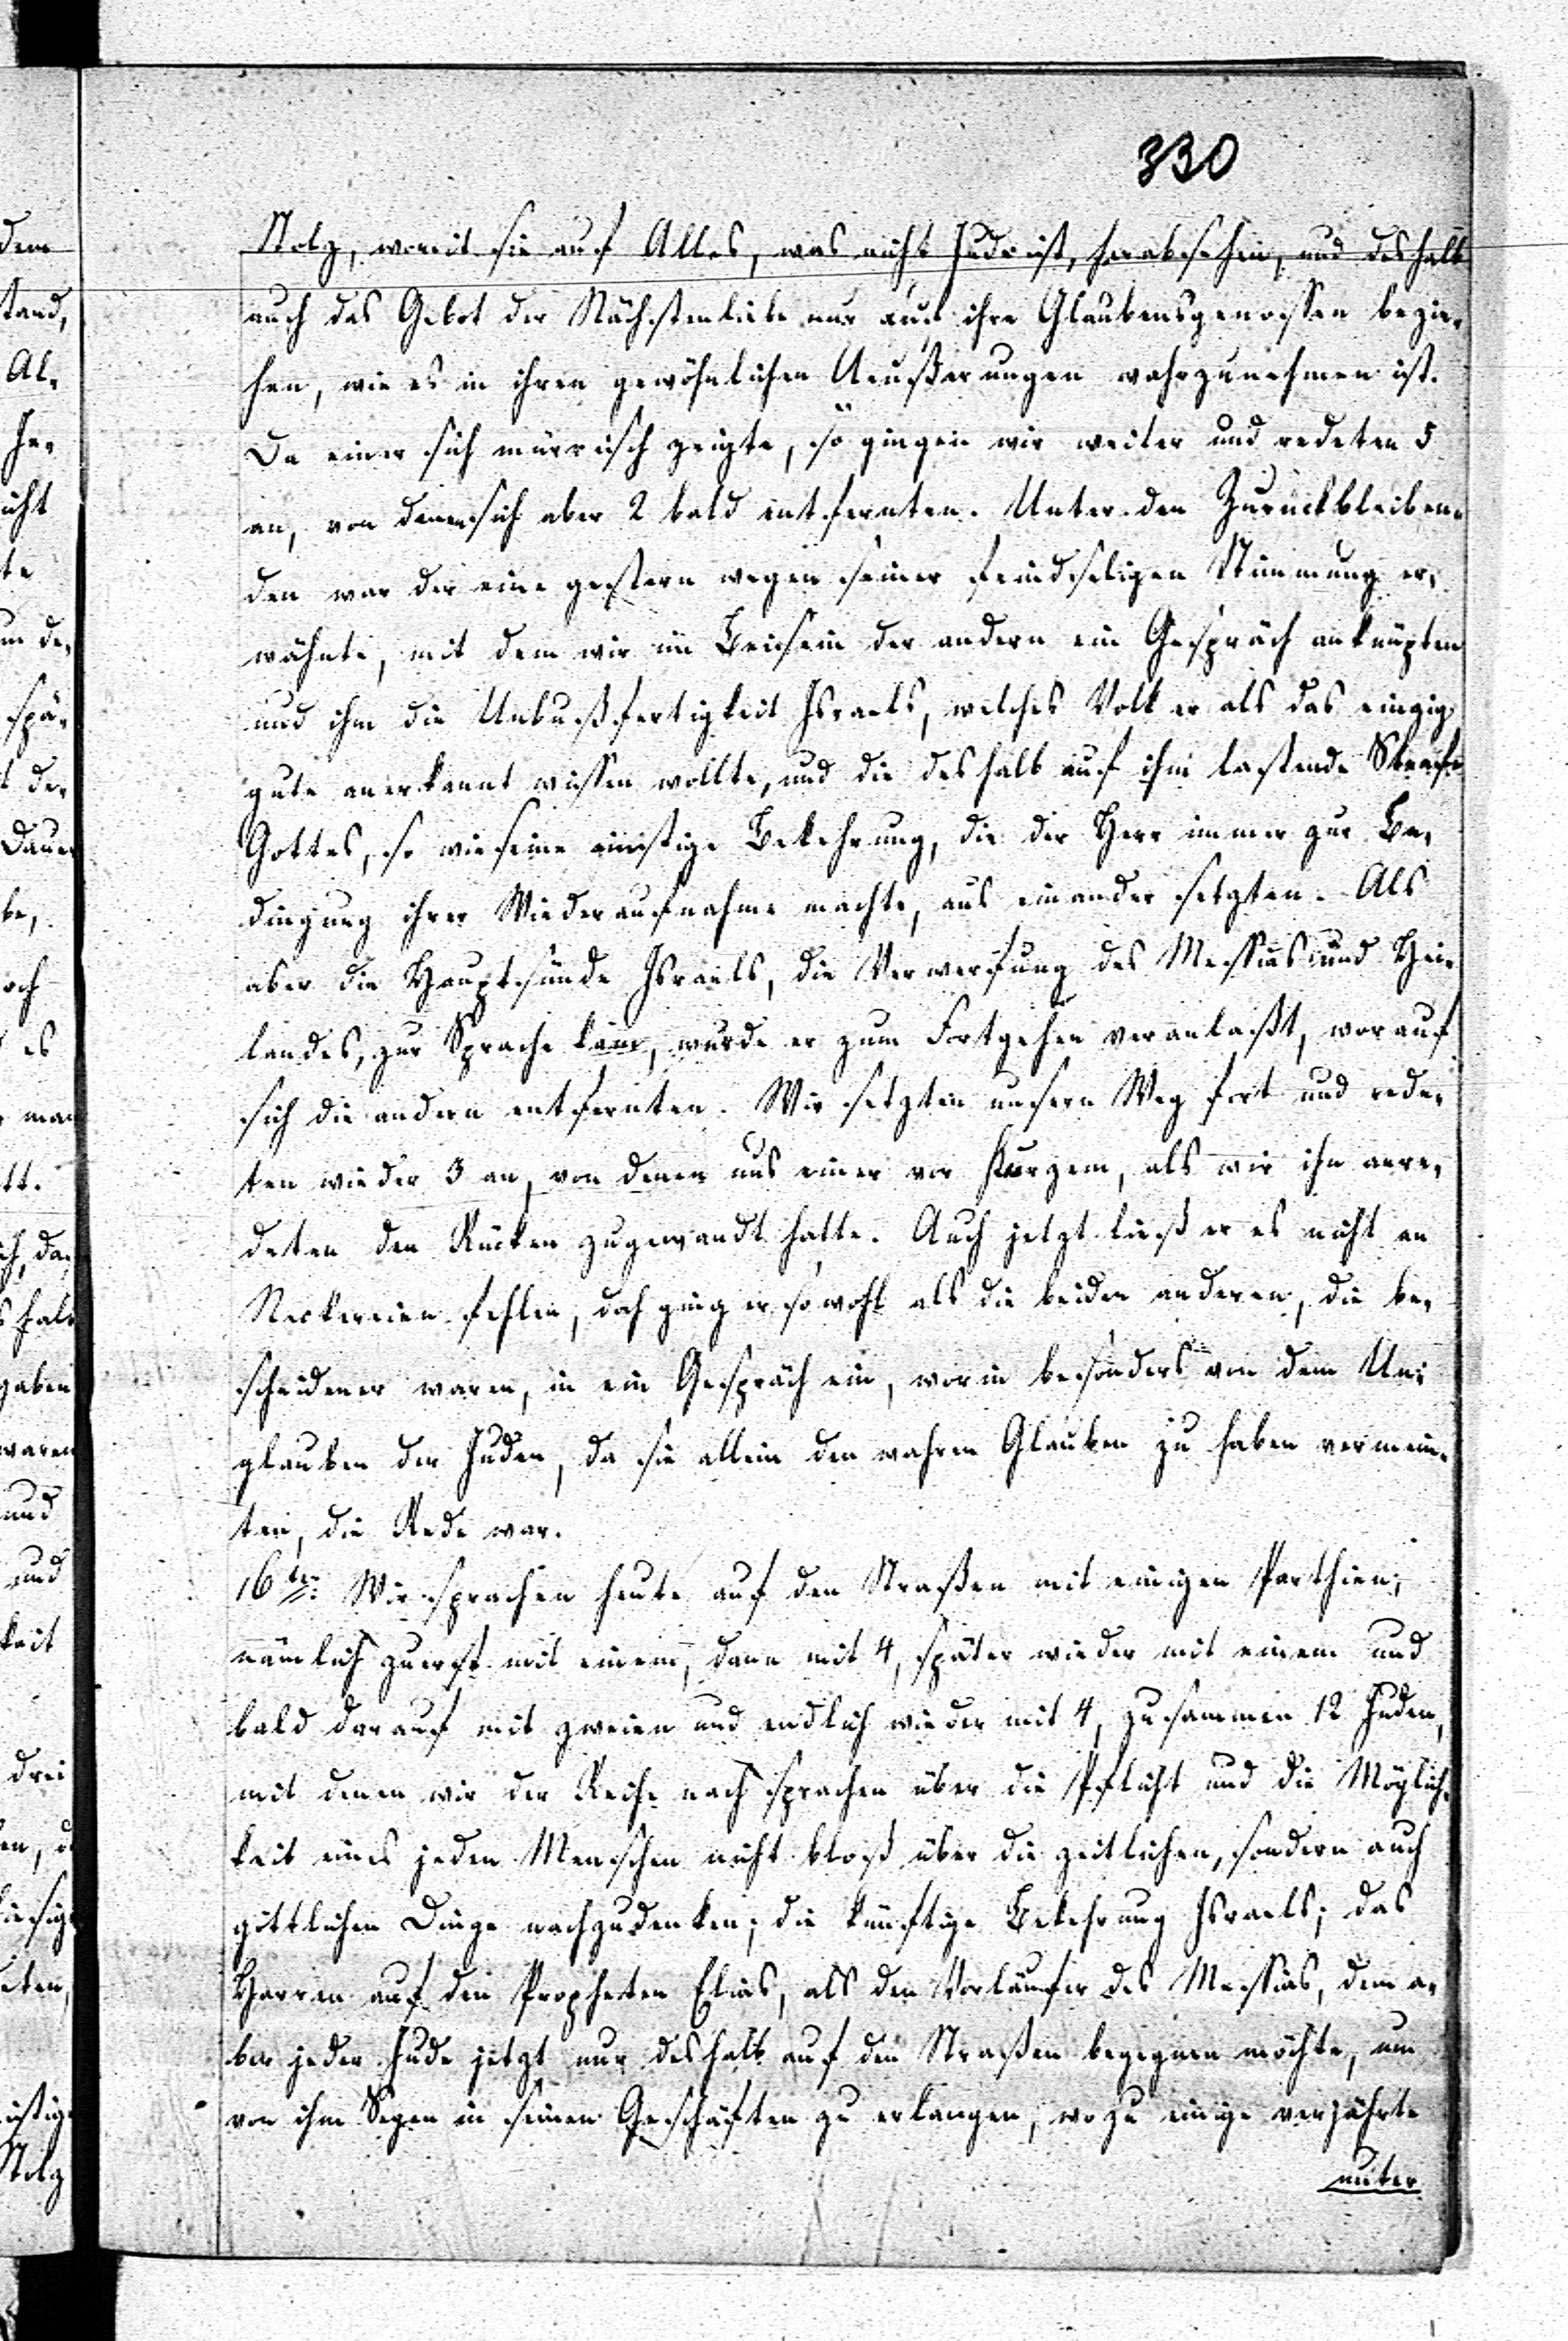 330
Stolz, womit sie auf Alles, was nicht Jude ist, herabsehen, und deshalb
auch das Gebot der Nächstenliebe nur auf ihre Glaubensgenossen bezie-
hen, wie es in ihren gewöhnlichen Aeußerungen wahrzunehmen ist.
Da einer sich mürrisch zeigte, so gingen wir weiter und redeten 5
an, von denen sich aber 2 bald entfernten. Unter den Zurückbleiben-
den war der eine gestern wegen seiner feindseligen Stimmung er-
wähnte, mit dem wir im Beisein der andern ein Gespräch anknüpten
und ihm die Unbußfertigkeit Israels, welches Volk er als das einzig
gute anerkannt wissen wollte, und die deshalb auf ihm lastende Strafe
Gottes, so wie seine einstige Bekehrung, die der Herr immer zur Be-
dingung ihrer Wiederaufnahme machte, aus einander setzten. Als
aber die Hauptsünde Israels, die Verwerfung des Messias und Hei-
landes, zur Sprache kam, wurde er zum Fortgehen veranlaßt, worauf
sich die andern entfernten. Wir setzten unsern Weg fort und rede-
ten wieder 3 an, von denen uns einer vor Kurzem, als wir ihn anre-
deten den Rücken zugewandt hatte. Auch jetzt ließ er es nicht an
Neckereien fehlen, doch ging er sowohl als die beiden anderen, die be-
scheidener waren, in ein Gespräch ein, worin besonders von dem Un-
glauben der Juden, da sie allein den wahren Glauben zu haben vermein-
ten, die Rede war.
16ten. Wir sprachen heute auf den Straßen mit einigen Parthien;
nämlich zuerst mit einem, dann mit 4, später wieder mit einem und
bald darauf mit zweien und endlich wieder mit 4, zusammen 12 Juden,
mit denen wir der Reihe nach sprachen über die Pflicht und die Möglich-
keit eines jeden Menschen nicht bloß über die zeitlichen, sondern auch
göttlichen Dinge nachzudenken; die künftige Bekehrung Israels; das
Harren auf den Propheten Elias, als den Vorläufer des Messias, dem a-
ber jeder Jude jetzt nur deshalb auf den Straßen begegnen möchte, um
von ihm Segen in seinen Geschäften zu erlangen, wozu einige verjährte
unter